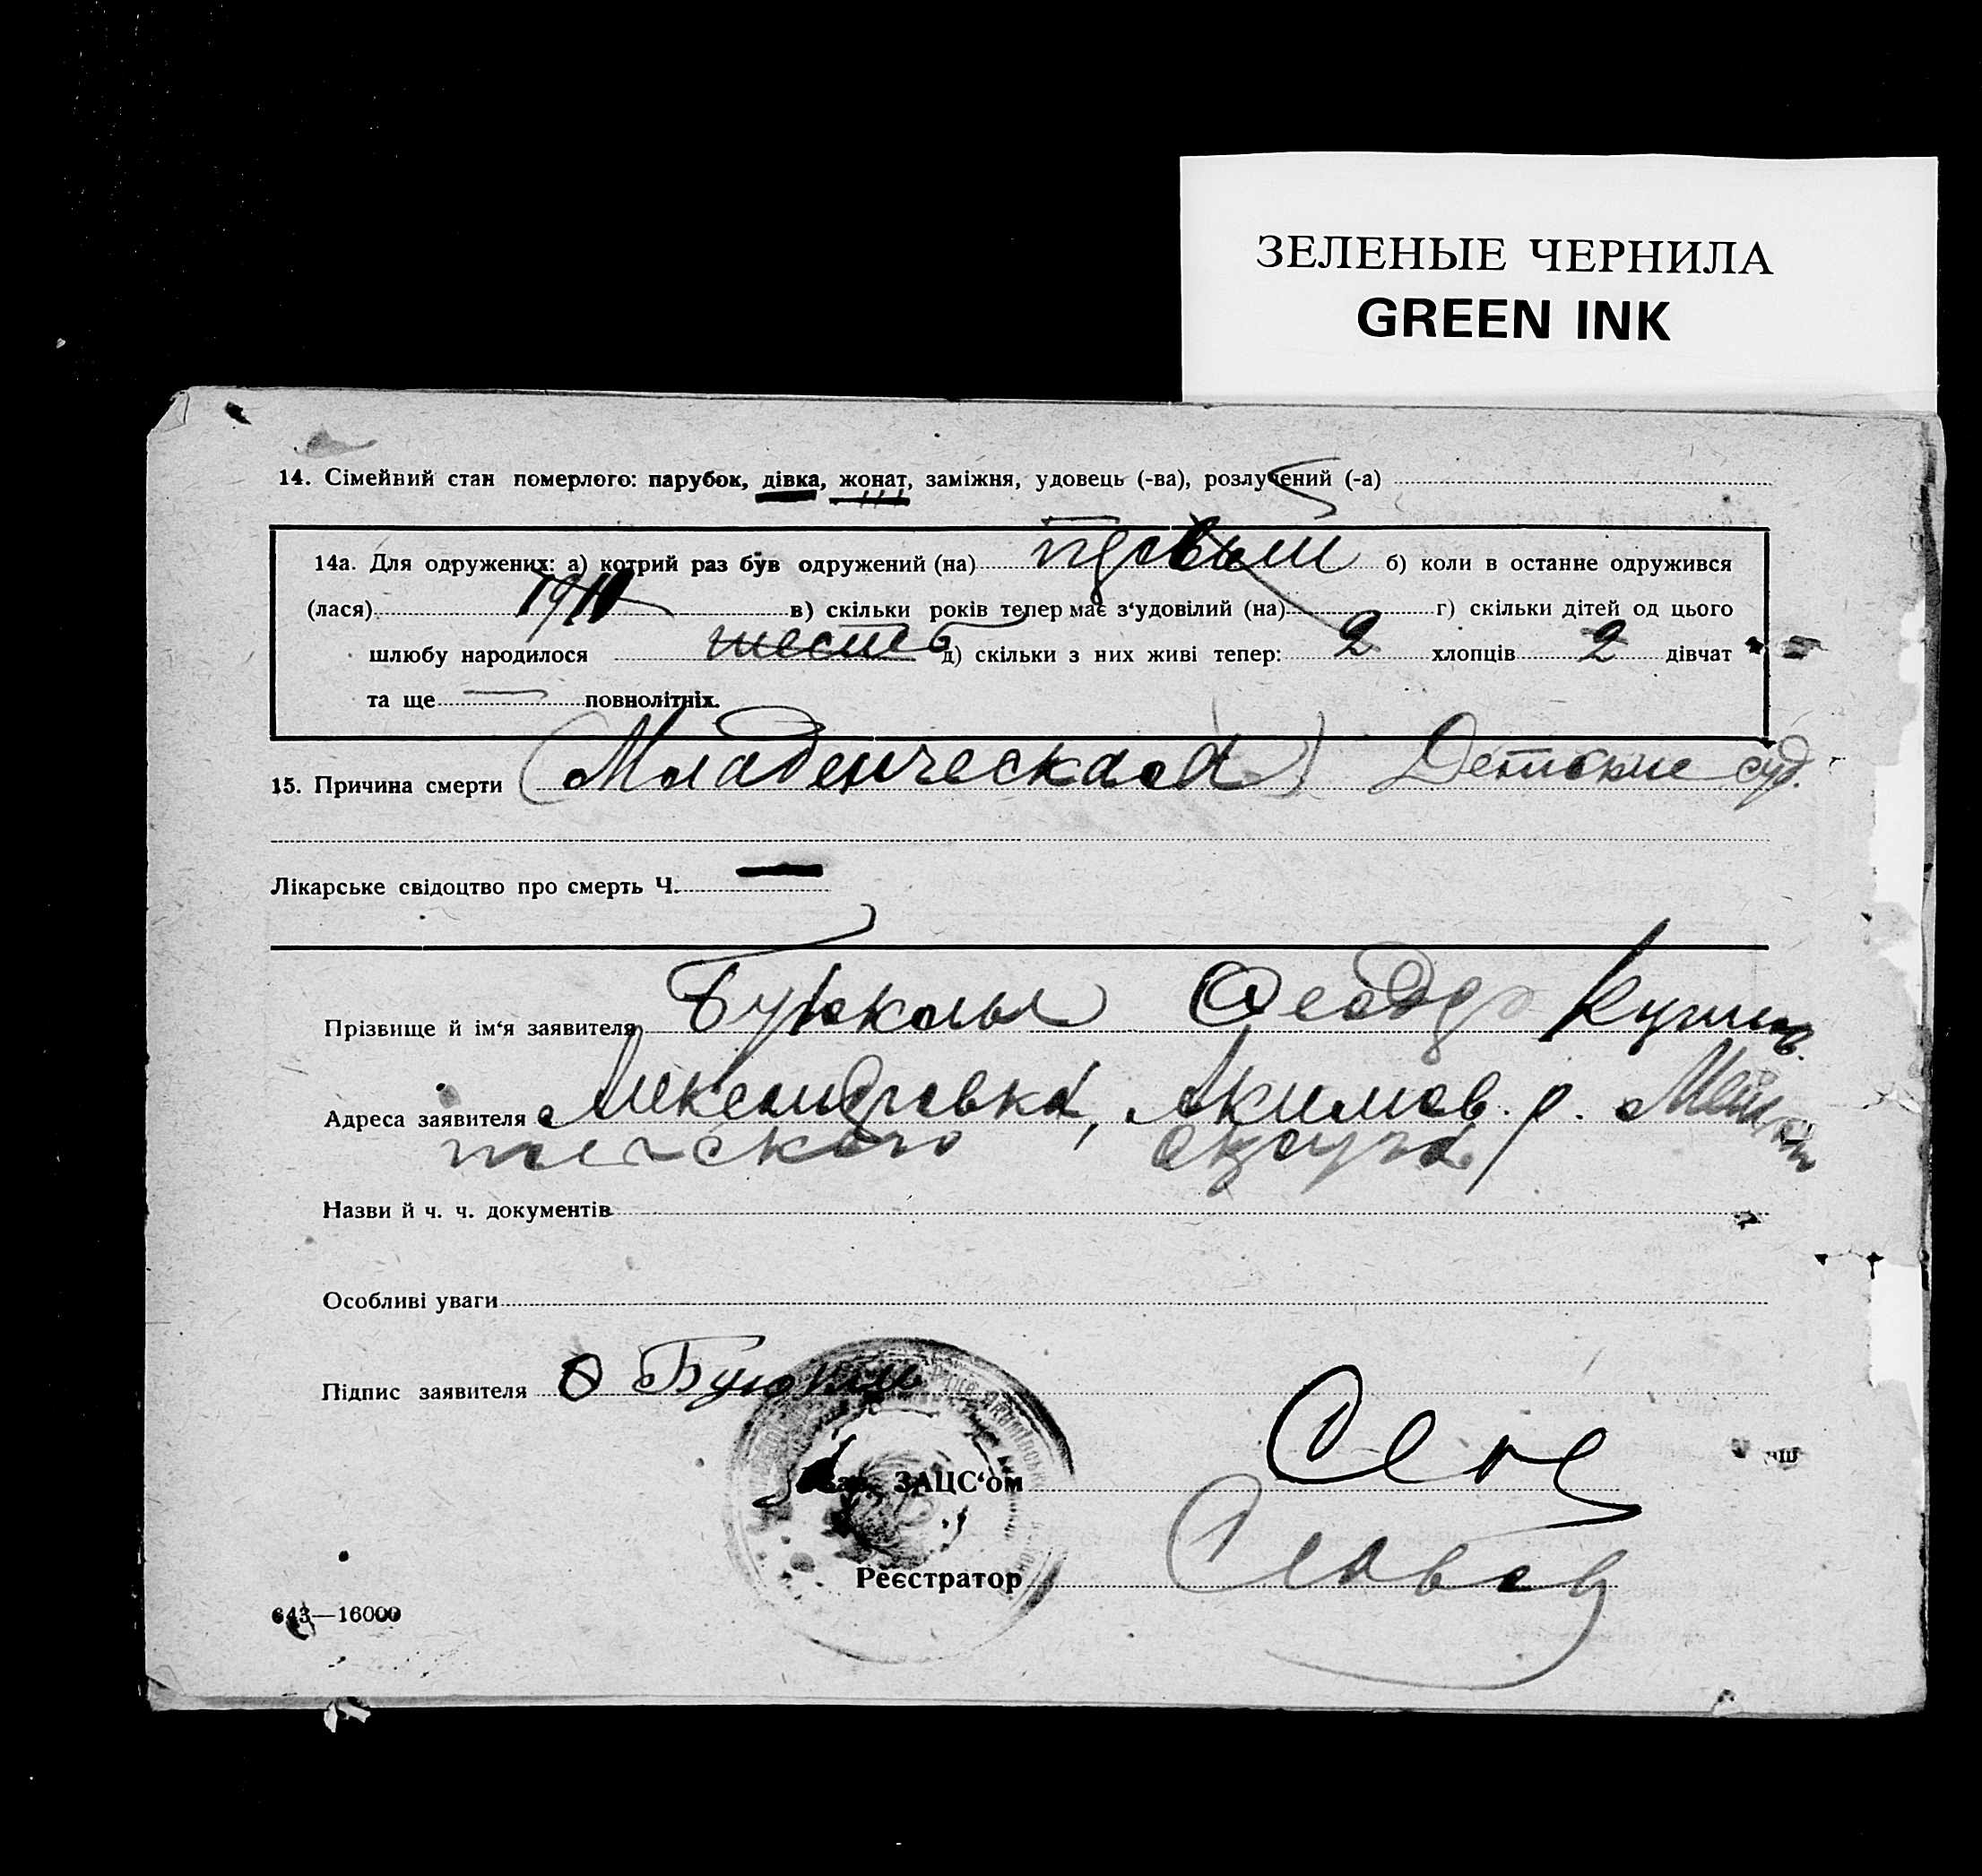 ЗЕЛЕНЫЕ ЧЕРНИЛА
GREEN INK
14. Сімейний стан померлого: парубок, дівка, жонат, заміжня, удовець (-ва), розлучений (-а)
14а. Для одружених: а) котрий раз був одружений (на) б) коли в останне одружився
(лася) 1910 в) скільки років тепер має з‘удовілий (на) г) скільки дітей од цього
шлюбу народилося шесть д) скільки з них живі тепер: 2 хлопців 2 дівчат
та ще повнолітніх.
15. Причина смерти (Младенческая) Детские суд.
Лікарське свідоцтво про смерть Ч.
Прізвище й ім‘я заявителя Феодор
Адреса заявителя Александровка, Акимов. р. Мелитопольского округа
Назви й ч. ч. документів
Особливі уваги
Підпис заявителя
Зав. ЗАЦС‘ом
Реєстратор
643—16000